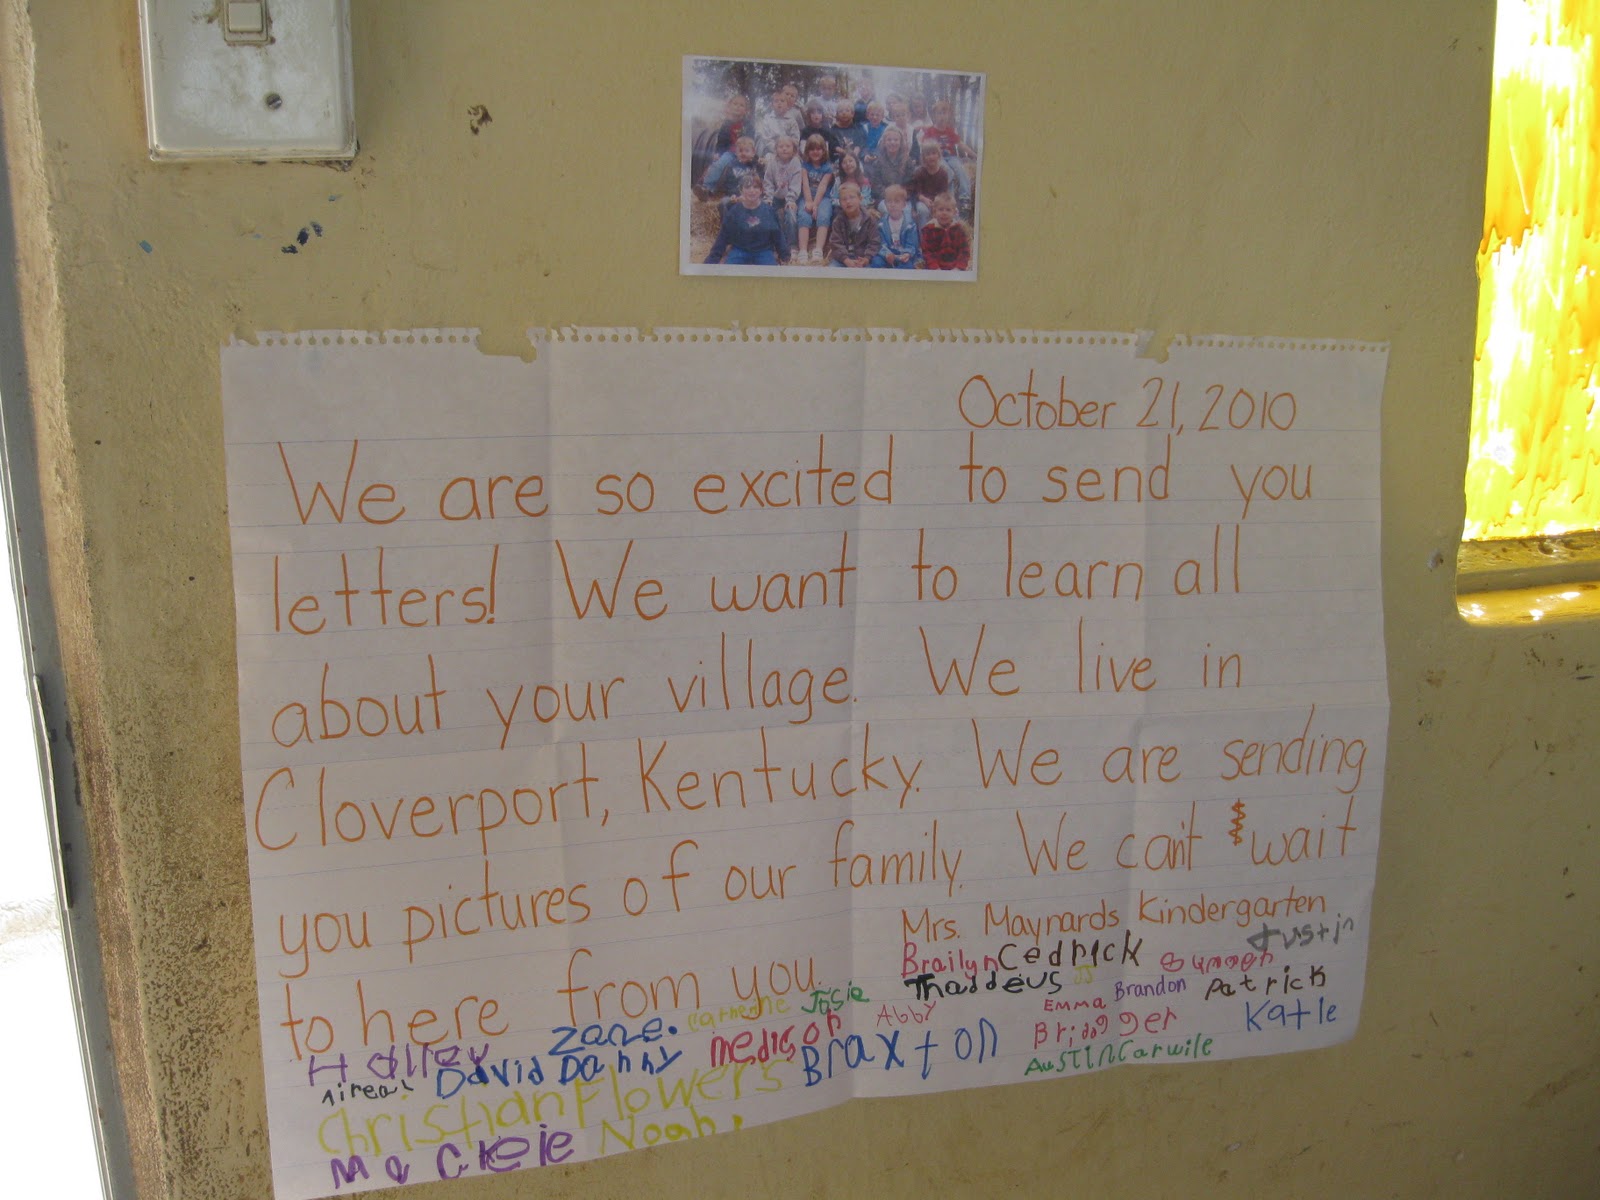 October 21, 2010
We are so excited to send you
letters! We want to learn all
about your village. We live in
Cloverport, Kentucky. We are sending
you pictures of our family. We can't wait
to here from you.
Mrs. Maynards Kindergarten
Justin
Brailyn Cedrick
Thaddeus JJ
Emma Brandon Patrick
Zane. Catherine Josie
Abby Bridgger Katie
Hailey David Danny Medison Braxton
Austin Carwile
Christian Flowers
Mackeie Noah